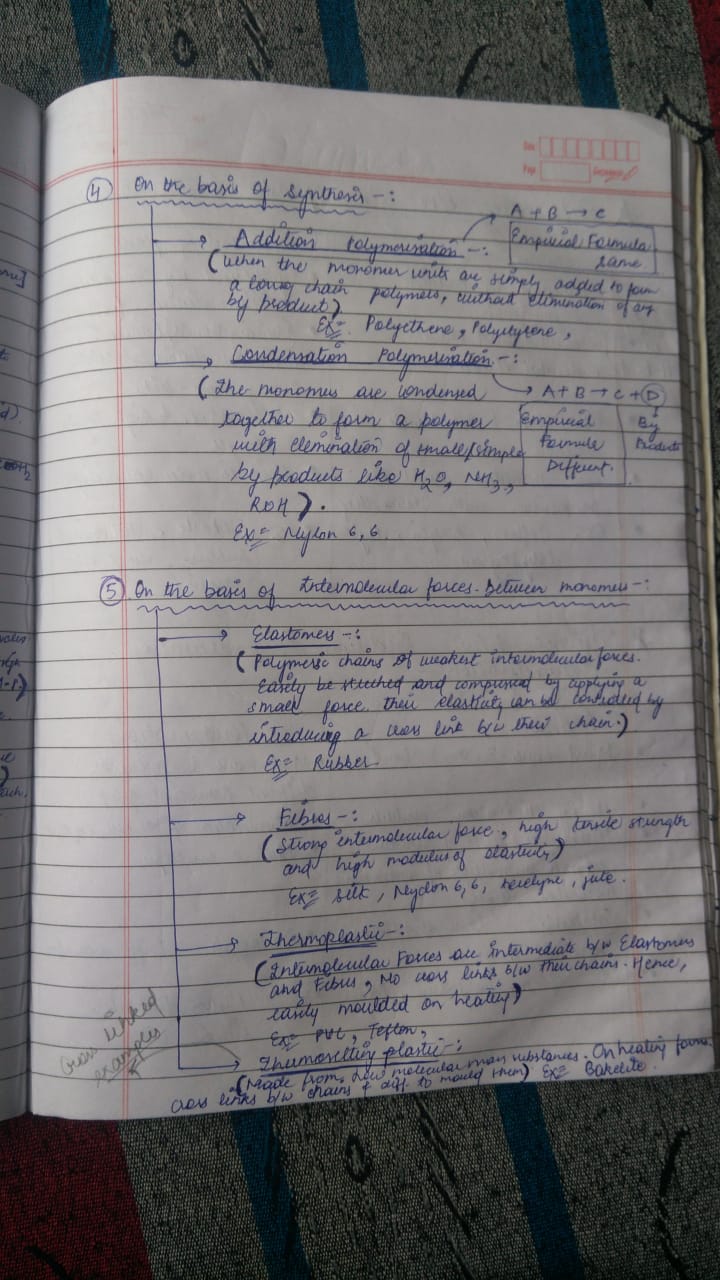 Date
Page
④ On the basis of Synthesis -:
A + B → C
Addition Polymerisation -:
Empirical Formula same
(when the monomer units are simply added to form
a long chain polymers, without elimination of any
by product)
Ex = Polyethene, Polystyrene,
Condensation Polymerisation -:
(The monomers are condensed
A + B → C + D
together to form a polymer
Empirical Formula Different.
By Products
with elemination of small/simple
by products like H2O, NH3,
ROH).
Ex = Nylon 6, 6
⑤ On the basis of Intermolecular forces. Between monomers -:
Elastomers -:
(Polymeric chains of weakest intermolecular forces.
Easily be streched and compressed by applying a
small force. their elasticity can be controlled by
introducing a cross link b/w their chain.)
Ex = Rubber
Fibres -:
(Strong intermolecular force, high tensile strength
and high modulus of elasticity)
Ex = Silk, Nylon 6, 6, terelyne, jute.
Thermoplastic -:
(Intermolecular Forces are intermediate b/w Elastomers
and Fibres, No cross links b/w their chains. Hence,
easily moulded on heating)
Ex = PVC, Teflon,
Cross linked
examples
Thermosetting plastic -:
(Made from low molecular mass substances. On heating forms
cross links b/w chains & diff. to mould them) Ex = Bakelite.